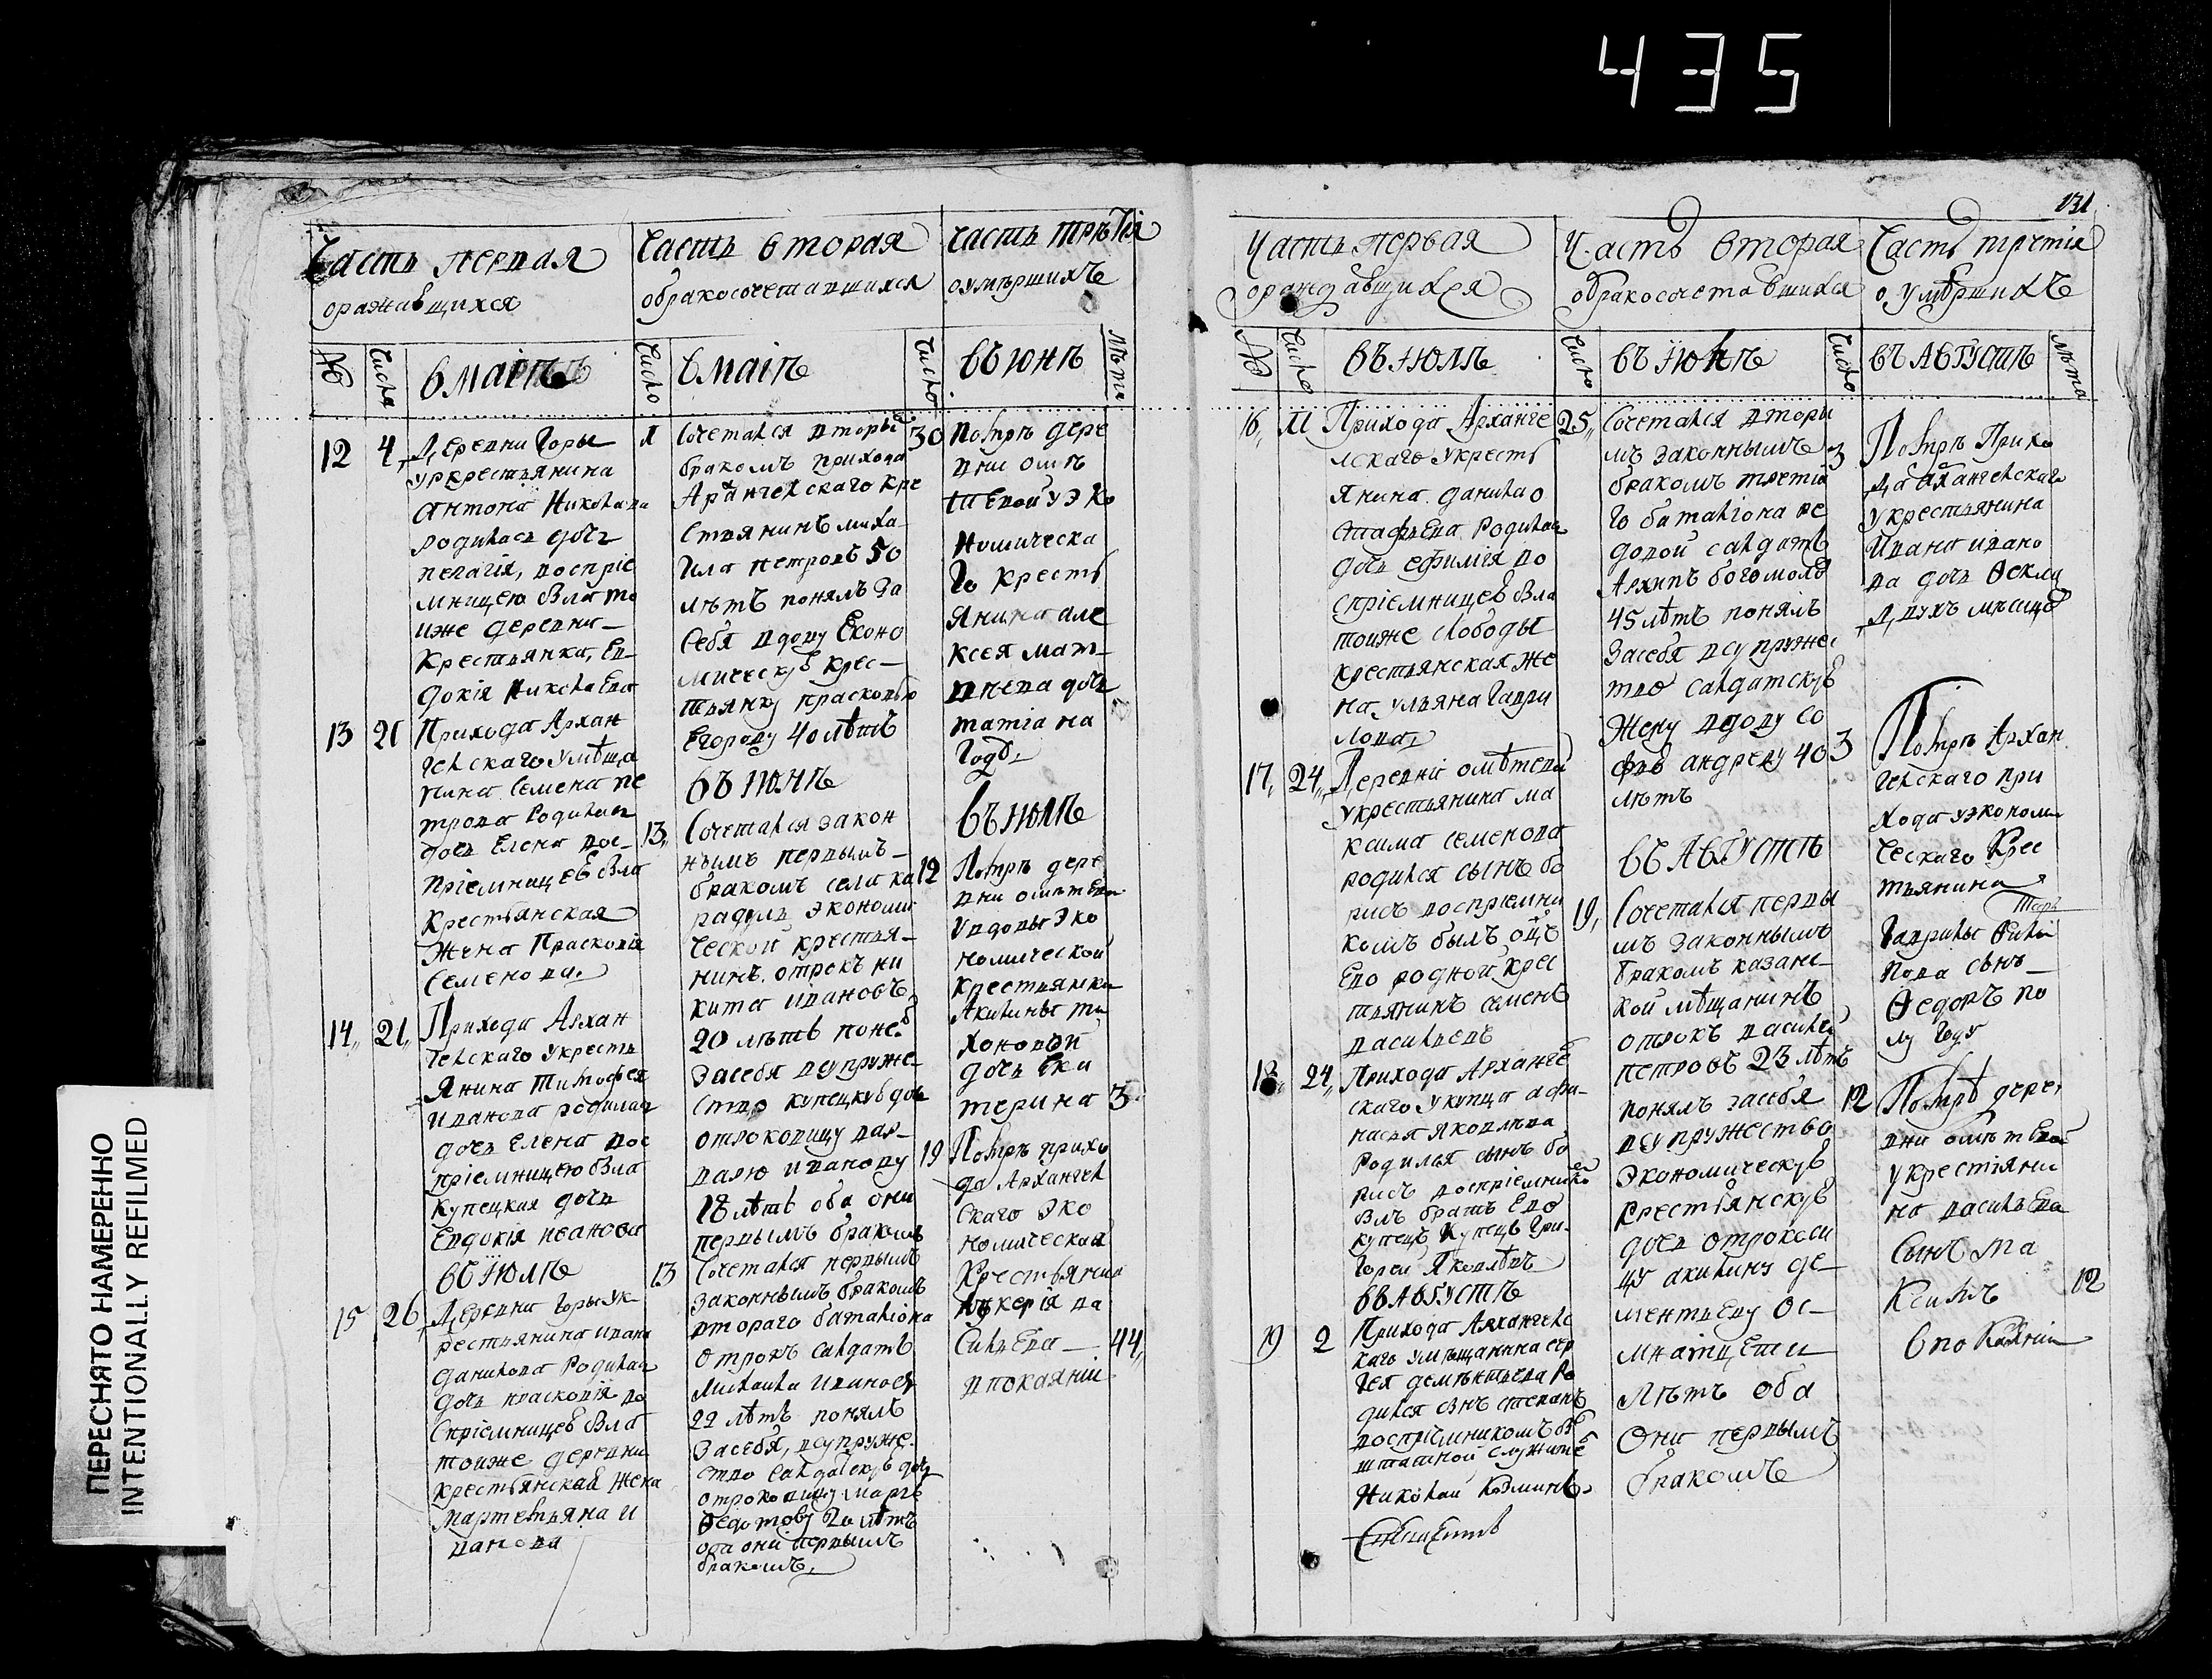 435
131
Часть первая
оражавщихся
Часть вторая
обракосочетавшихся
Часть третія
оумѣршихъ
№
Числа
в маіѣ
Число
в маіѣ
Число
въ юнѣ
лѣта
12
4
Деревни Горы
у крестьянина
Антона Николаева
родилась дочь
пелагія, воспріе
мницею была то
иже деревни
Крестьянка, Ев
докія Николаева
13
21
Прихода Архан
гелскаго у мѣща
нина Семена пе
трова Родилась
дочь Елена вос
пріемницею была
Крестьянская
Жена Прасковія
Семенова.
14
21
Прихода Архан
гелскаго у кресть
янина Тимофея
Иванова родилась
дочь Елена вос
пріемницею была
купецкая дочь
Евдокія иванова
въ июлѣ
15
26
Деревни Горы ук
рестьянина ивана
данилова Родилась
дочь прасковія во
спріемницею была
тоиже деревни
крестьянская жена
Мартемьяна и
ванова
Сочетался вторы
бракомъ прихода
Архангелскаго кре
стьянинъ миха
ила петровъ 50
лѣтъ понялъ за
себя вдову Еконо
мическую крес
тьянку прасковью
Егорову 40 лѣтъ
въ июнѣ
13
Сочетался закон
нымъ первымъ
бракомъ села ка
радулъ экономи
ческой крестья
нинъ отрокъ ни
кита ивановъ
20 лѣтъ понелъ
засебя всупруже
ство купецкую дочь
отроковицу вар
вару иванову
18 лѣтъ оба они
первымъ бракомъ
13
Сочетался первымъ
законнымъ бракомъ
втораго баталіона
отрокъ салдатъ
Михаила Ивановъ
22 лѣтъ понялъ
засебя, всупруже
ство салдатскую дочь
отроковицу марѳу
Ѳедотову 20 лѣтъ
оба они первымъ
бракомъ
30
Помре дере
вни омѣ
тевой у эко
номическа
го кресть
янина але
ксея мат
вѣева дочь
татіана
Годъ
въ июлѣ
12
Помре дере
вни омѣтевы
у вдовы эко
номической
крестьянки
Акилины ти
хоновой
дочь ека
терина
3
19
Помре прихо
да Архангел
скаго эко
номическая
Крестьянка
Лукерія ва
сильева
44
в покаяніи
Часть первая
ораждавщихся
Часть вторая
обракосочетавшихся
Часть третія
о умѣршихъ
№
Число
въ июлѣ
Число
въ июлѣ
Число
въ Августѣ
лѣта
16
11
Прихода Арханге
лскаго у кресть
янина данила о
стафьева Родилась
дочь ефимія во
спріемницею была
тоиже слободы
крестьянская же
на ульяна Гаври
лова
17
24
Деревни омѣтевы
у крестьянина ма
ксима семенова
родился сынъ бо
рисъ воспріемни
комъ былъ оцъ
Ево родной крес
тьянинъ семенъ
васильевъ
18
24
Прихода Арханге
скаго у купца афа
насья яковлева
Родился сынъ бо
рисъ воспріемнико
былъ братъ Ево
купецъ Купецъ Гри
горей Яковлевъ
въ Августѣ
19
2
Прихода Архангелс
каго у мѣщанина сер
гея дементьева Ро
дился сынъ степанъ
воспріемникомъ был
штатной служитель
Николай Козминъ
25
Сочетался вторы
мъ законнымъ
бракомъ третія
го баталіона ре
довой салдатъ
Архипъ богомоло
45 лѣтъ понялъ
засебя всупруже
тво салдатскую
Жену вдову со
фью андрееву 40
лѣтъ
въ Августѣ
19
Сочетался первы
мъ законнымъ
бракомъ казанс
кой мѣщанинъ
отрокъ василей
петровъ 23 лѣтъ
понялъ засебя
всупружество
экономическую
крестьянскую
дочь отрокови
цу акилину де
ментьеву ос
мнатцети
лѣтъ оба
они первымъ
бракомъ
3
Помре Прихо
да Архангелскаго
у крестьянина
Ивана ивано
ва дочь Ѳекла
Двухъ мѣсяцо
3
Помре Архан
гелскаго при
хода у экономи
ческаго Крес
тьянина
Гаврилы Фили
пова сынъ
Ѳедоръ по
лу году
12
Помре дерев
вни омѣтевой
у крестьяни
на васильева
сынъ ма
ксимъ
12
в покаяніи
ПЕРЕСНЯТО НАМЕРЕННО
INTENTIONALLY REFILMED